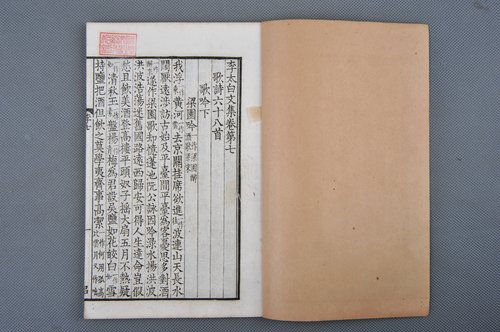 李太白文集卷第七
歌詩六十八首
歌吟下
梁園吟
我浮黄河去京關掛席欲進波連山天長水
闊厭遠涉訪古始及平臺間平臺為客憂思多對酒
遂作梁園歌却憶蓬池阮公詠因吟渌水揚洪波
洪波浩蕩迷舊國路遠西歸安可得人生達命豈假
愁且飲美酒登高樓平頭奴子搖大扇五月不熱疑
清秋玉盤楊梅為君設吳鹽如花皎白雪
持鹽把酒但飲之莫學夷齊事高潔